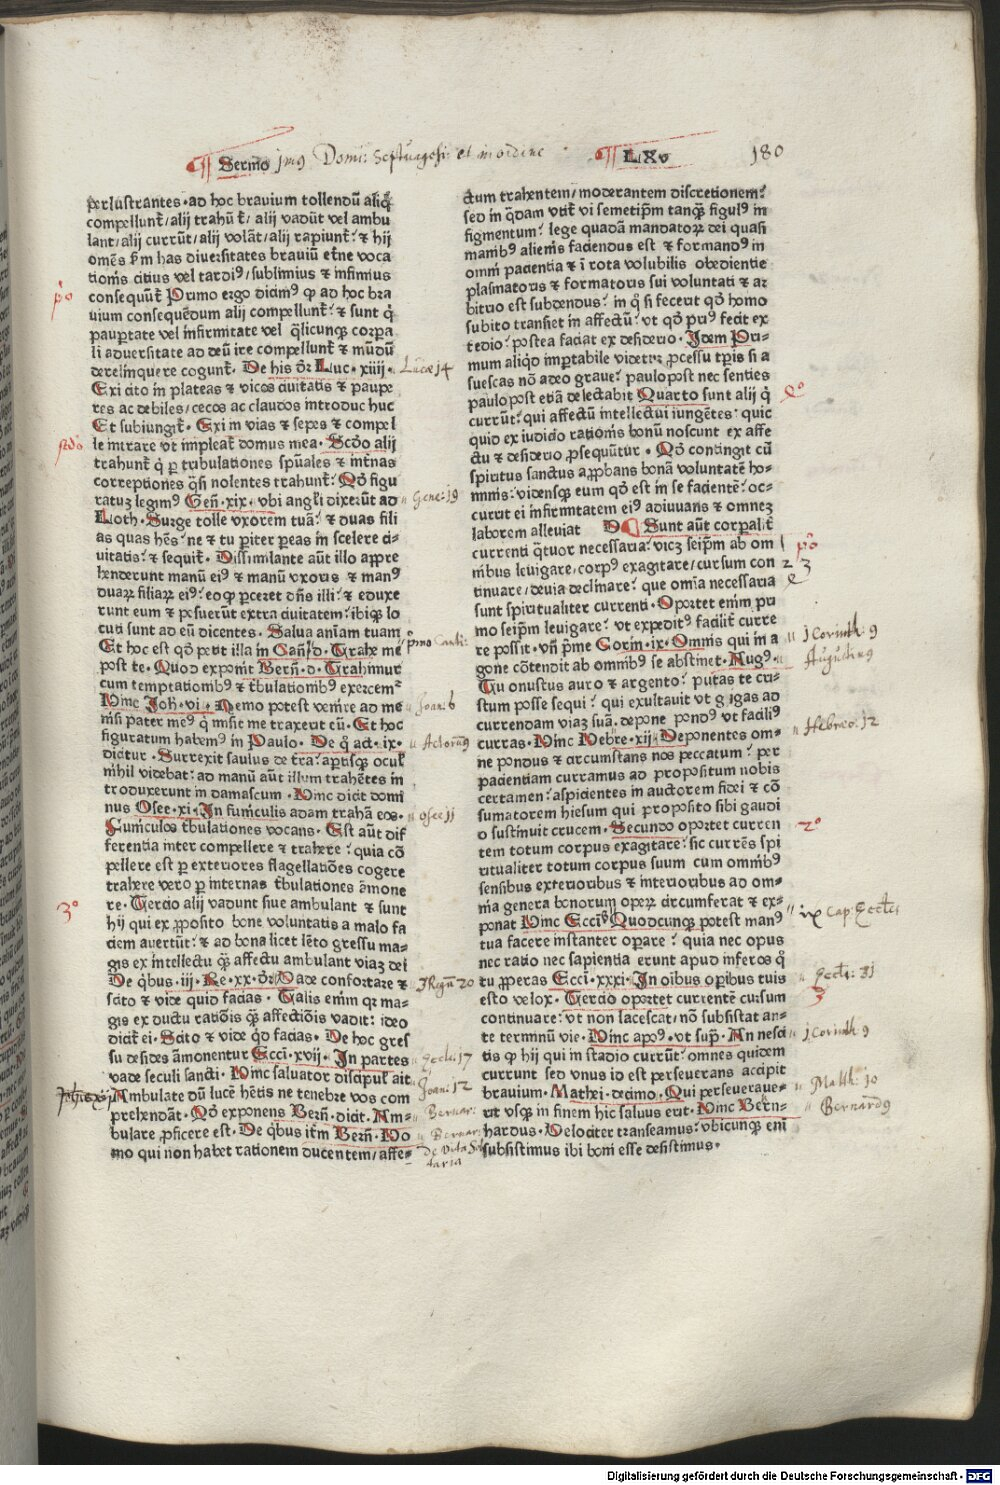 Sermo jm9 Domi: Septuagesi: et in ordine
LXv 180
perlustrantes. ad hoc bravium tollendū aliq̄
compellunt̄/ alij trahūt̄/ alij vadūt vel ambu
lant/alij currūt/ alij volāt/ alij rapiunt̄: ⁊ hij
omēs ẜm has diuersitates brauiū et̄ne voca
tionis citius vel tardi⁹/ sublimius ⁊ infimius
consequūt̄ Primo ergo dicim⁹ ꝙ ad hoc bra
uium consequēdum alij compellunt̄: ⁊ sunt q̇
paup̄tate vel infirmitate vel q̄licunqꝫ corꝑa
li aduersitate ad deū ire compellunt̄ ⁊ mūdū
derelinquere cogunt̄. De his dr̄: Luc. xiiij.
Exi cito in plateas ⁊ vicos ciuitatis ⁊ paupe
res ac debiles/ cecos ac claudos introduc huc
Et subiungit̄. Exi in vias ⁊ sepes ⁊ compel
le intrare vt impleat̄ domus mea. Scd̄o alij
trahunt̄ q̇ ꝑ tribulationes spūales ⁊ int̄nas
correptiones q̄si nolentes trahunt̄: Qd̄ figu
ratuꝫ legim⁹ Gen̄. xix. vbi angl̄i dixerūt ad
Loth. Surge tolle vxorem tuā: ⁊ duas fili
as quas hēs: ne ⁊ tu ꝑiter ꝑeas in scelere ci-
uitatis: ⁊ sequit̄. Dissimilante aūt illo appre
henderunt manū ei⁹ ⁊ manū vxoris ⁊ man⁹
duaꝝ filiaꝝ ei⁹: eo ꝙ ꝑceret dn̄s illi: ⁊ eduxe
runt eum ⁊ posuerūt extra ciuitatem: ibiqꝫ lo
cuti sunt ad eū dicentes. Salua animam tuam
Et hoc est qd̄ petit illa in Can̄. d. Trahe me
post te. Quod exponit Bern̄. d. Trahimur
cum temptationib⁹ ⁊ t̄bulationib⁹ exercem̄
Hinc Joh. vi. Nemo potest venire ad me
nisi pater me⁹ q̇ misit me traxerit eū. Et hoc
figuratum habem⁹ in Paulo. De q̊ act. ix.
dicitur. Surrexit saulus de t̄ra: aꝑtisqꝫ ocul̄
nihil videbat: ad manū aūt illum trahētes in
troduxerunt in damascum. Hinc dicit domi
nus Osee. xi. In funiculis adam trahā eos.
Funiculos t̄bulationes vocans. Est aūt dif
ferentia inter compellere ⁊ trahere: quia cō
pellere est ꝑ exteriores flagellatiōes cogere
trahere vero ꝑ internas t̄bulationes āmone
re. Tercio alij vadunt siue ambulant ⁊ sunt
hij qui ex ꝓposito bone voluntatis a malo fa
ciem auertūt: ⁊ ad bona licet lēto gressu ma-
gis ex intellectu q̄ affectu ambulant viaꝫ dei
De qb̄us. iij. Re. xx. dr̄. Vade confortare ⁊
scito ⁊ vide quid facias. Talis enim qꝛ ma-
gis ex ductu ratiōis q̄ affectiōis vadit: ideo
dicit̄ ei. Scito ⁊ vide qd̄ facias. De hoc gres
su desides āmonentur Ecc̄i. xvij. In partes
vade seculi sancti. Hinc saluator discipul̄ ait
Ambulate dū lucē hētis ne tenebre vos com
prehendāt. Qd̄ exponens Bern̄. dicit. Am-
bulare ꝓficere est. De qb̄us it̄m Bern̄. Ho
mo qui non habet rationem ducentem/ affe-
ctum trahentem/ moderantem discretionem:
sed in q̄dam vtit̄ vi semetip̄m tanqꝫ figul⁹ in
figmentum: lege quadā mandatoꝝ dei quasi
manib⁹ alienis faciendus est ⁊ formand⁹ in
omni pacientia ⁊ ī rota volubilis obedientie
plasmatoris ⁊ formatoris sui voluntati ⁊ ar
bitrio est subdendus: in q̊ si fecerit qd̄ homo
subito transiet in affectū: vt qd̄ pri⁹ fecit ex
tedio: postea faciat ex desiderio. Idem Pri-
mum aliqd̄ imꝑtabile videt̄: ꝓcessu tꝑis si a
suescas nō adeo graue: paulo post nec senties
paulo post etiā delectabit Quarto sunt alij q̇
currūt: qui affectū intellectui iungētes: quic
quid ex iudicio rationis bonū noscunt ex affe
ctu ⁊ desiderio ꝓsequūtur. Qd̄ contingit cū
spiritus sanctus aꝓbans bonā voluntatē ho-
minis: vidensqꝫ eum qd̄ est in se facientē: oc-
currit ei infirmitatem ei⁹ adiuuans ⁊ omneꝫ
laborem alleuiat D Sunt aūt corꝑalit̄
currenti q̄tuor necessaria: vicꝫ seip̄m ab om
nibus leuigare/ corp⁹ exagitare/ cursum con
tinuare/ deuia declinare: que omīa necessaria
sunt spiritualiter currenti. Oportet enim pri
mo seip̄m leuigare: vt expedit⁹ facilit̄ curre
re possit. vn̄ prime Corin. ix. Omnis qui in a
gone cōtendit ab omnib⁹ se abstinet. Aug⁹.
Tu onustus auro ⁊ argento: putas te cri-
stum posse sequi: qui exultauit vt gigas ad
currendam viaꝫ suā. depone pond⁹ vt facili⁹
curras. Hinc Hebre. xij. Deponentes om-
ne pondus ⁊ circumstans nos peccatum: per
pacientiam curramus ad propositum nobis
certamen: aspicientes in auctorem fidei ⁊ cō
sumatorem hiesum qui proposito sibi gaudi
o sustinuit crucem. Secundo oportet curren
tem totum corpus exagitare: sic currēs spi
ritualiter totum corpus suum cum omnib⁹
sensibus exterioribus ⁊ interioribus ad om-
nia genera bonorum operꝝ circumferat ⁊ ex-
ponat Hinc Ecc̄i⁹ Quodcunqꝫ potest man⁹
tua facere instanter oꝑare: quia nec opus
nec ratio nec sapientia erunt apud inferos q̊
tu ꝓperas Ecci. xxxi. In oībus oꝑibus tuis
esto velox. Tercio oportet currentē cursum
continuare: vt non lacescat/ nō subsistat an-
te terminū vie. Hinc apo⁹. vt sup̄. An nesci
tis ꝙ hij qui in stadio currūt: omnes quidem
currunt sed vnus id est perseuerans accipit
brauium. Mathei. decimo. Qui perseueraue-
rit vsqꝫ in finem hic saluus erit. Hinc Bern-
hardus. Velociter transeamus: vbicunqꝫ eni
subsistimus ibi boni esse desistimus.
p̄o
Lucæ 14
scd̄o
Gene: 19
primo Canti:
Joan: 6
Actorū 9
osee 11
3°
3 Regū 20
Eccli: 17
Joani: 12
Bernar:
Bernar:
De Vita Soli
taria
q°
p̄o
2 3
1 Corinth: 9
Augustin9
Hebreo: 12
2°
ix Cap: Eccl̄es
Eccli: 31
3
1 Corinth 9
Matth: 10
Bernard9
Digitalisierung gefördert durch die Deutsche Forschungsgemeinschaft - DFG